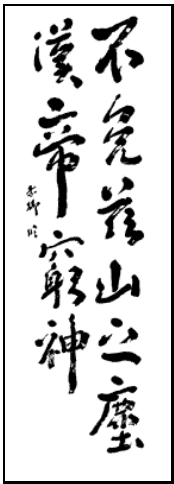 不免茲山之塵
漢帝窮神